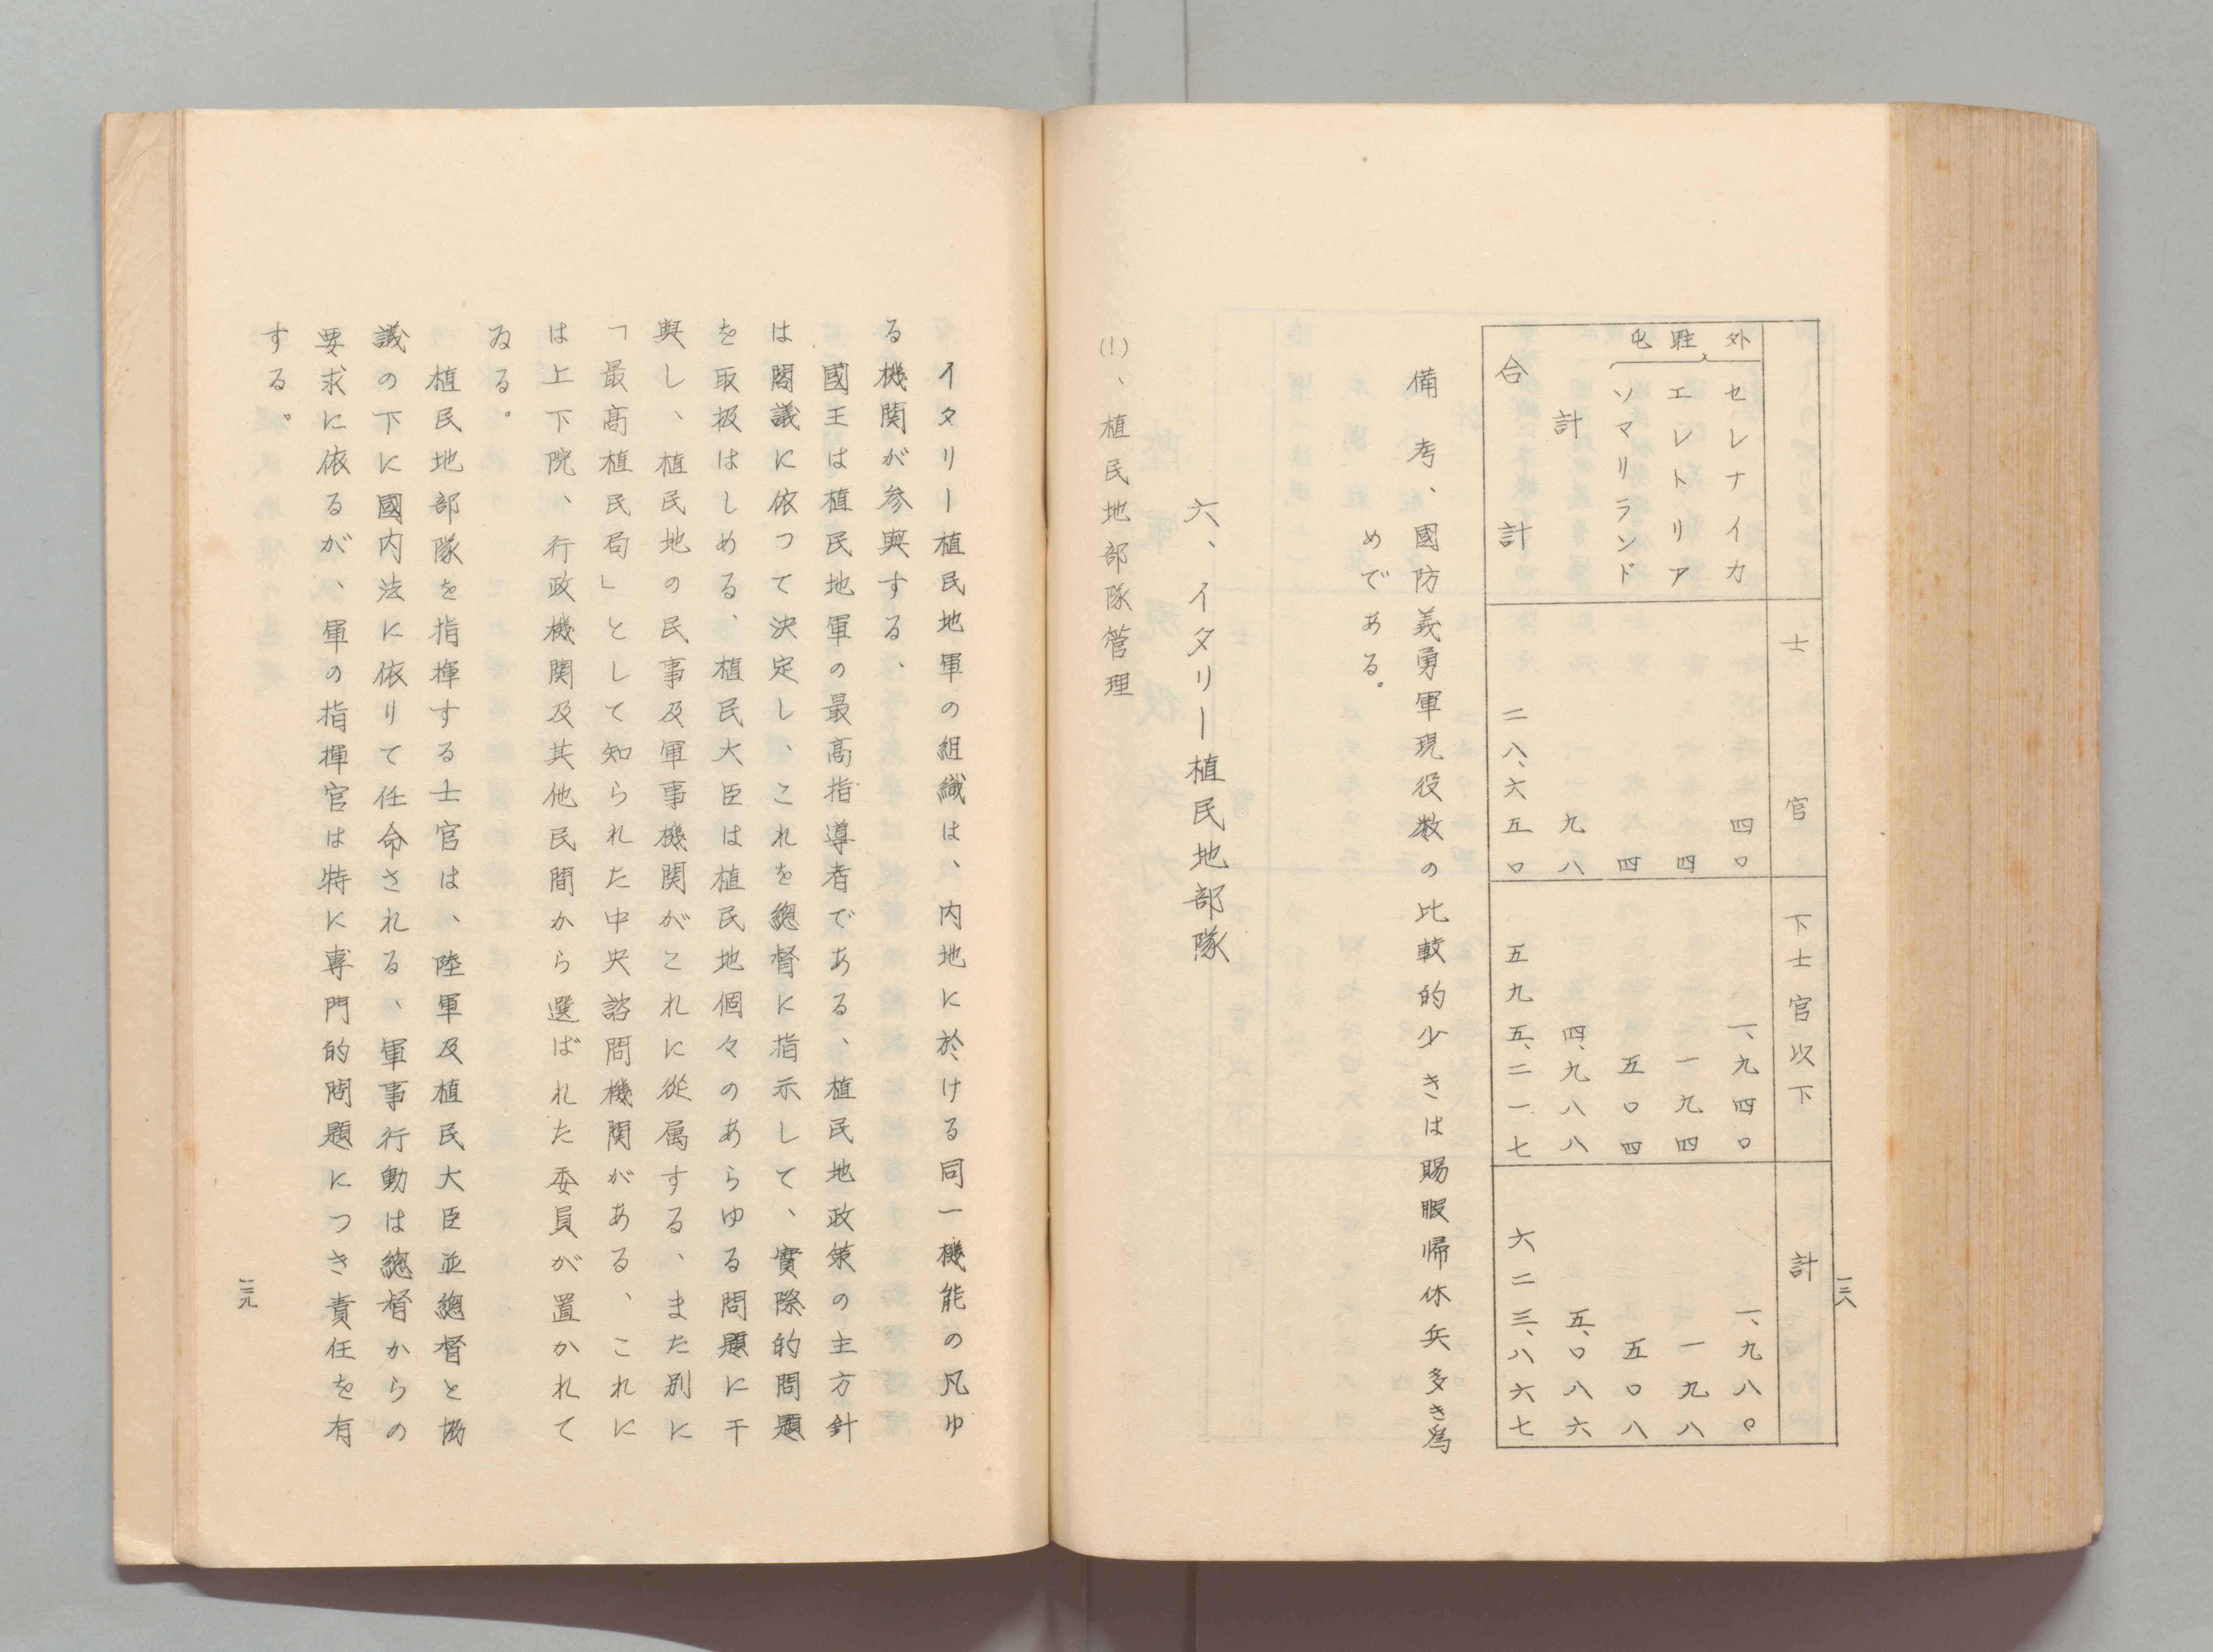 一三八
士官
下士官以下
計
外駐屯
セレナイカ
四〇
一、九四〇
一、九八〇
エレトリア
四
一九四
一九八
ソマリランド
四
五〇四
五〇八
計
九八
四、九八八
五、〇八六
合計
二八、六五〇
五九五、二一七
六二三、八六七
備考、國防義勇軍現役数の比較的少きは賜暇帰休兵多き為
めである。
六、イタリー植民地部隊
(1)、植民地部隊管理
イタリー植民地軍の組織は、内地に於ける同一機能の凡ゆ
る機関が参與する、
國王は植民地軍の最高指導者である、植民地政策の主方針
は閣議に依つて決定し、これを總督に指示して、實際的問題
を取扱はしめる、植民大臣は植民地個々のあらゆる問題に干
與し、植民地の民事及軍事機関がこれに從属する、また別に
「最高植民局」として知られた中央諮問機関がある、これに
は上下院、行政機関及其他民間から選ばれた委員が置かれて
ゐる。
植民地部隊を指揮する士官は、陸軍及植民大臣並總督と協
議の下に國内法に依りて任命される、軍事行動は總督からの
要求に依るが、軍の指揮官は特に専門的問題につき責任を有
する。
一三九